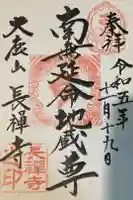 奉拝
令和五年
十月十九日
南無延命地蔵尊
大辰山
長禅寺
長禅寺